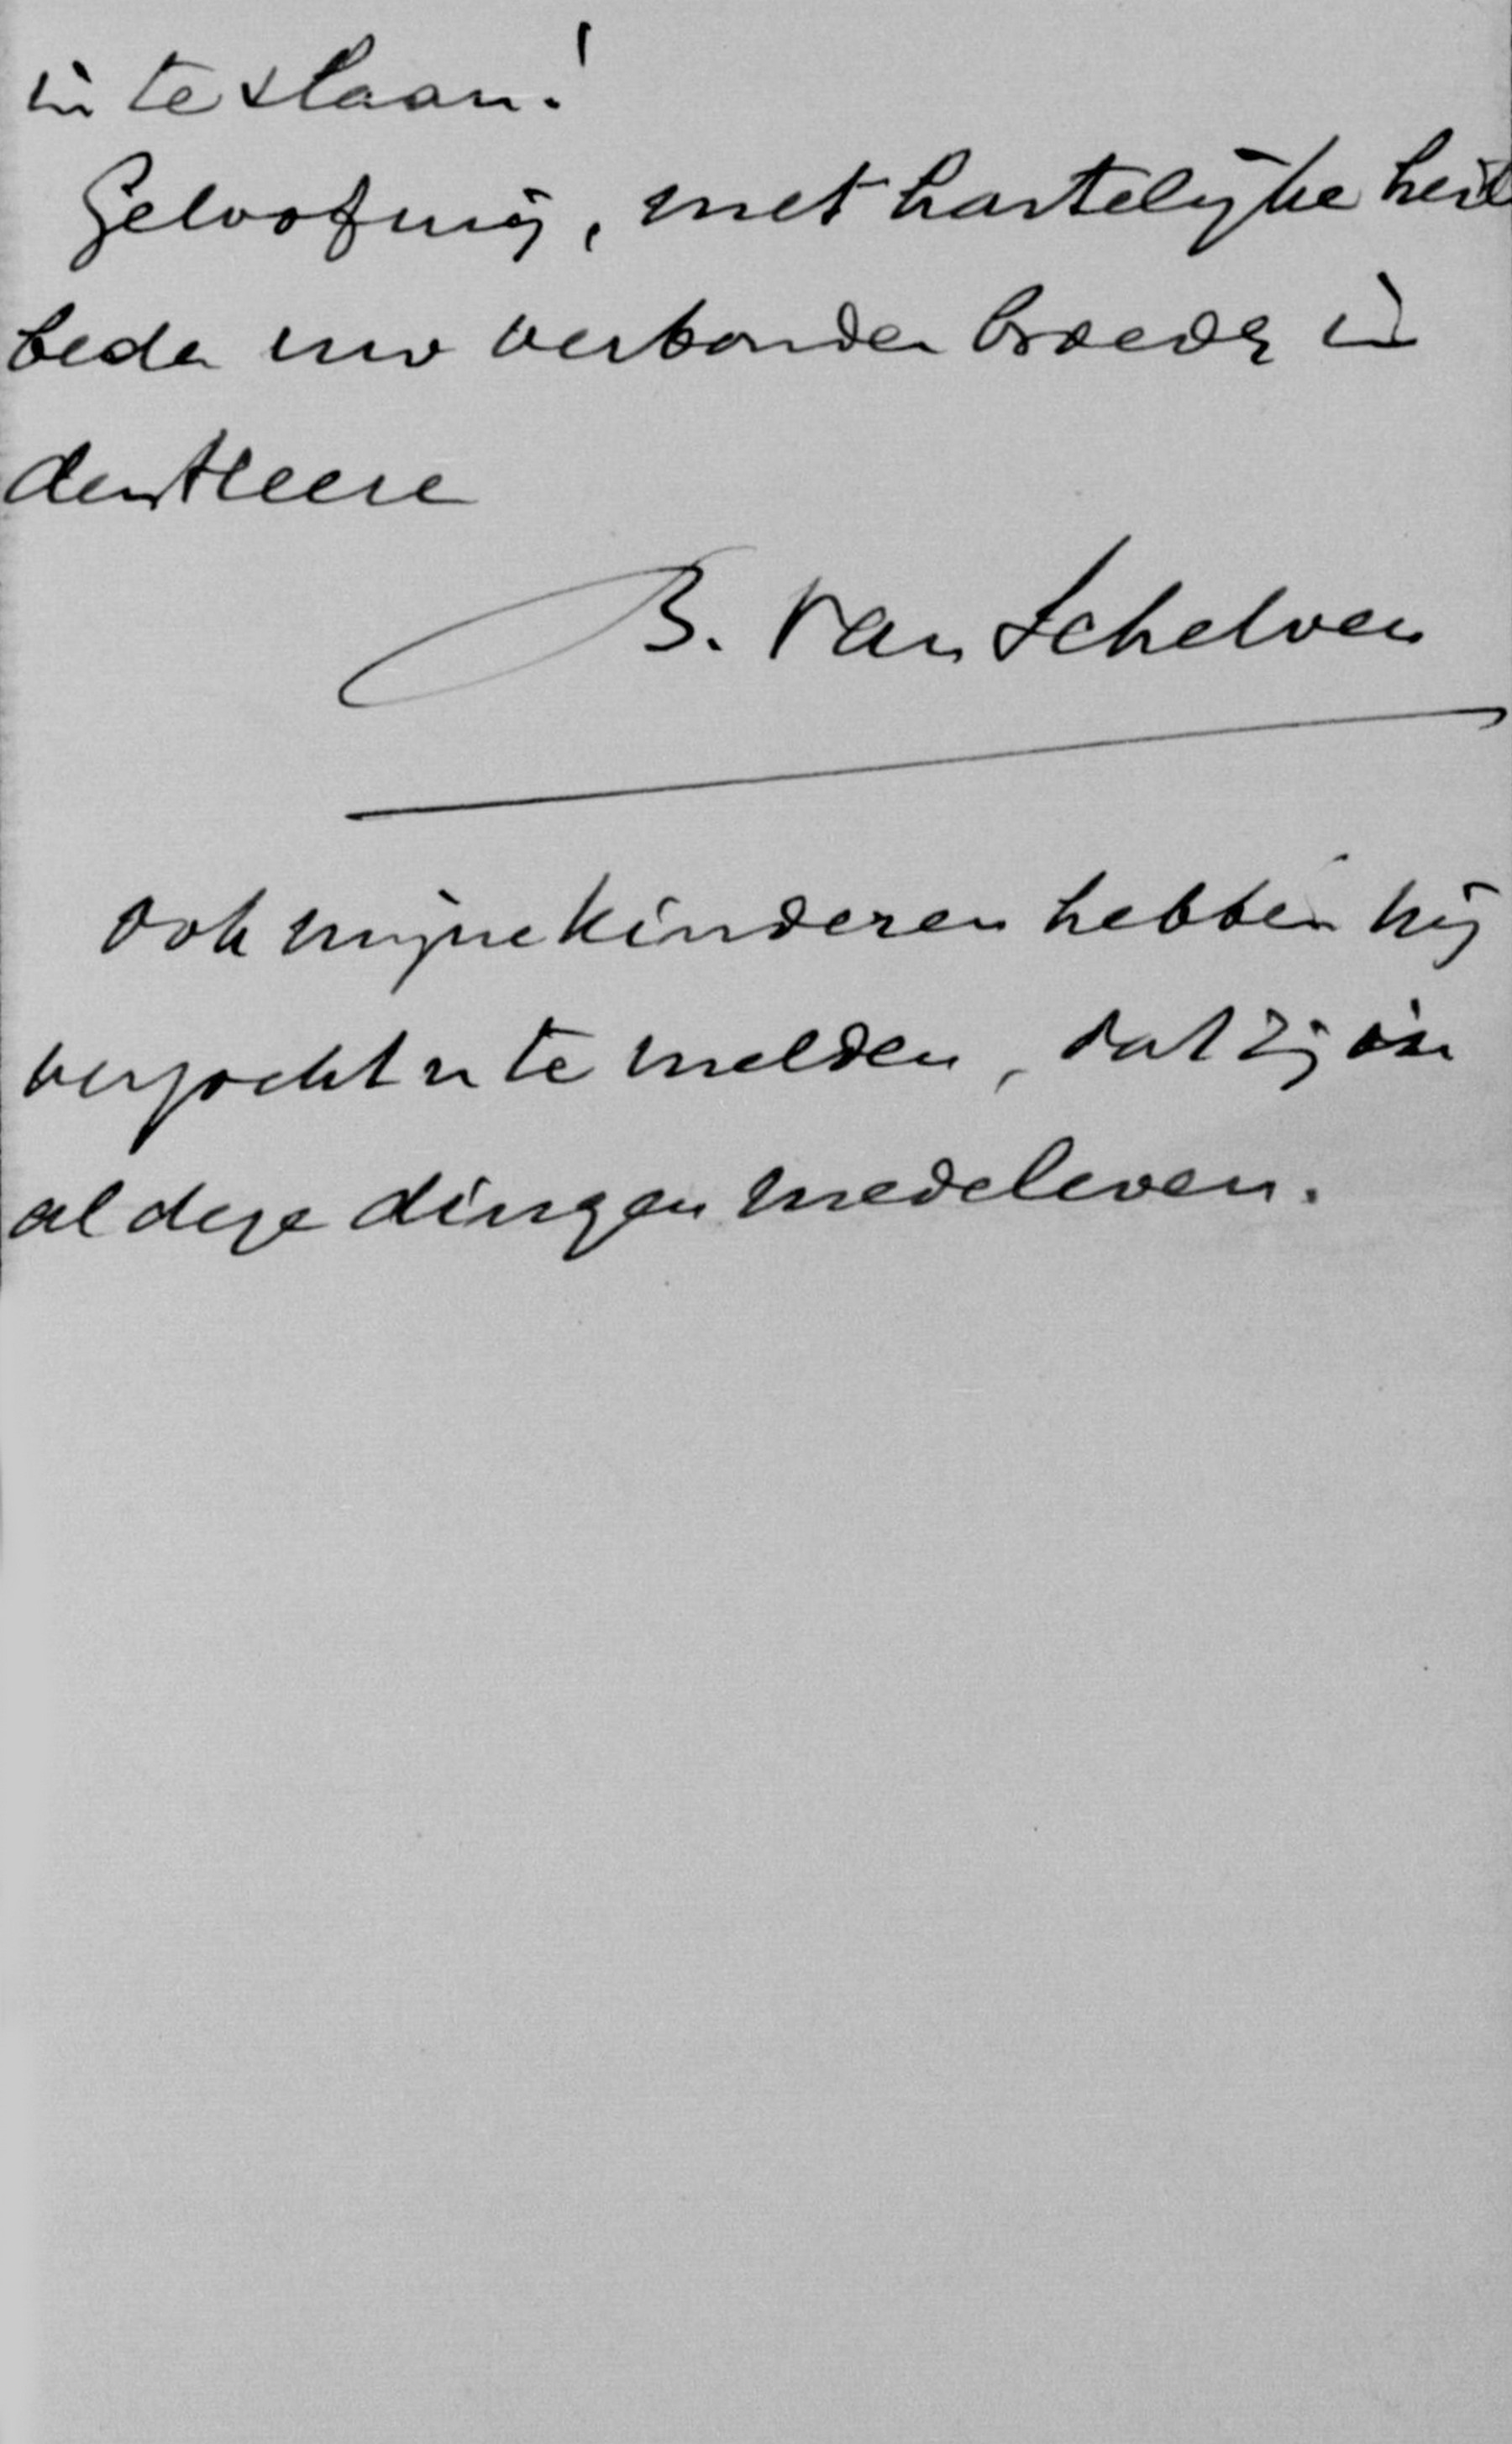 in te slaan!
Geloof mij, met hartelijke heil
bede uw verbonden broeder in
den Heere
B. van Schelven
Ook mijne kinderen hebben mij
verzocht u te melden, dat zij in
al deze dingen medeleven.